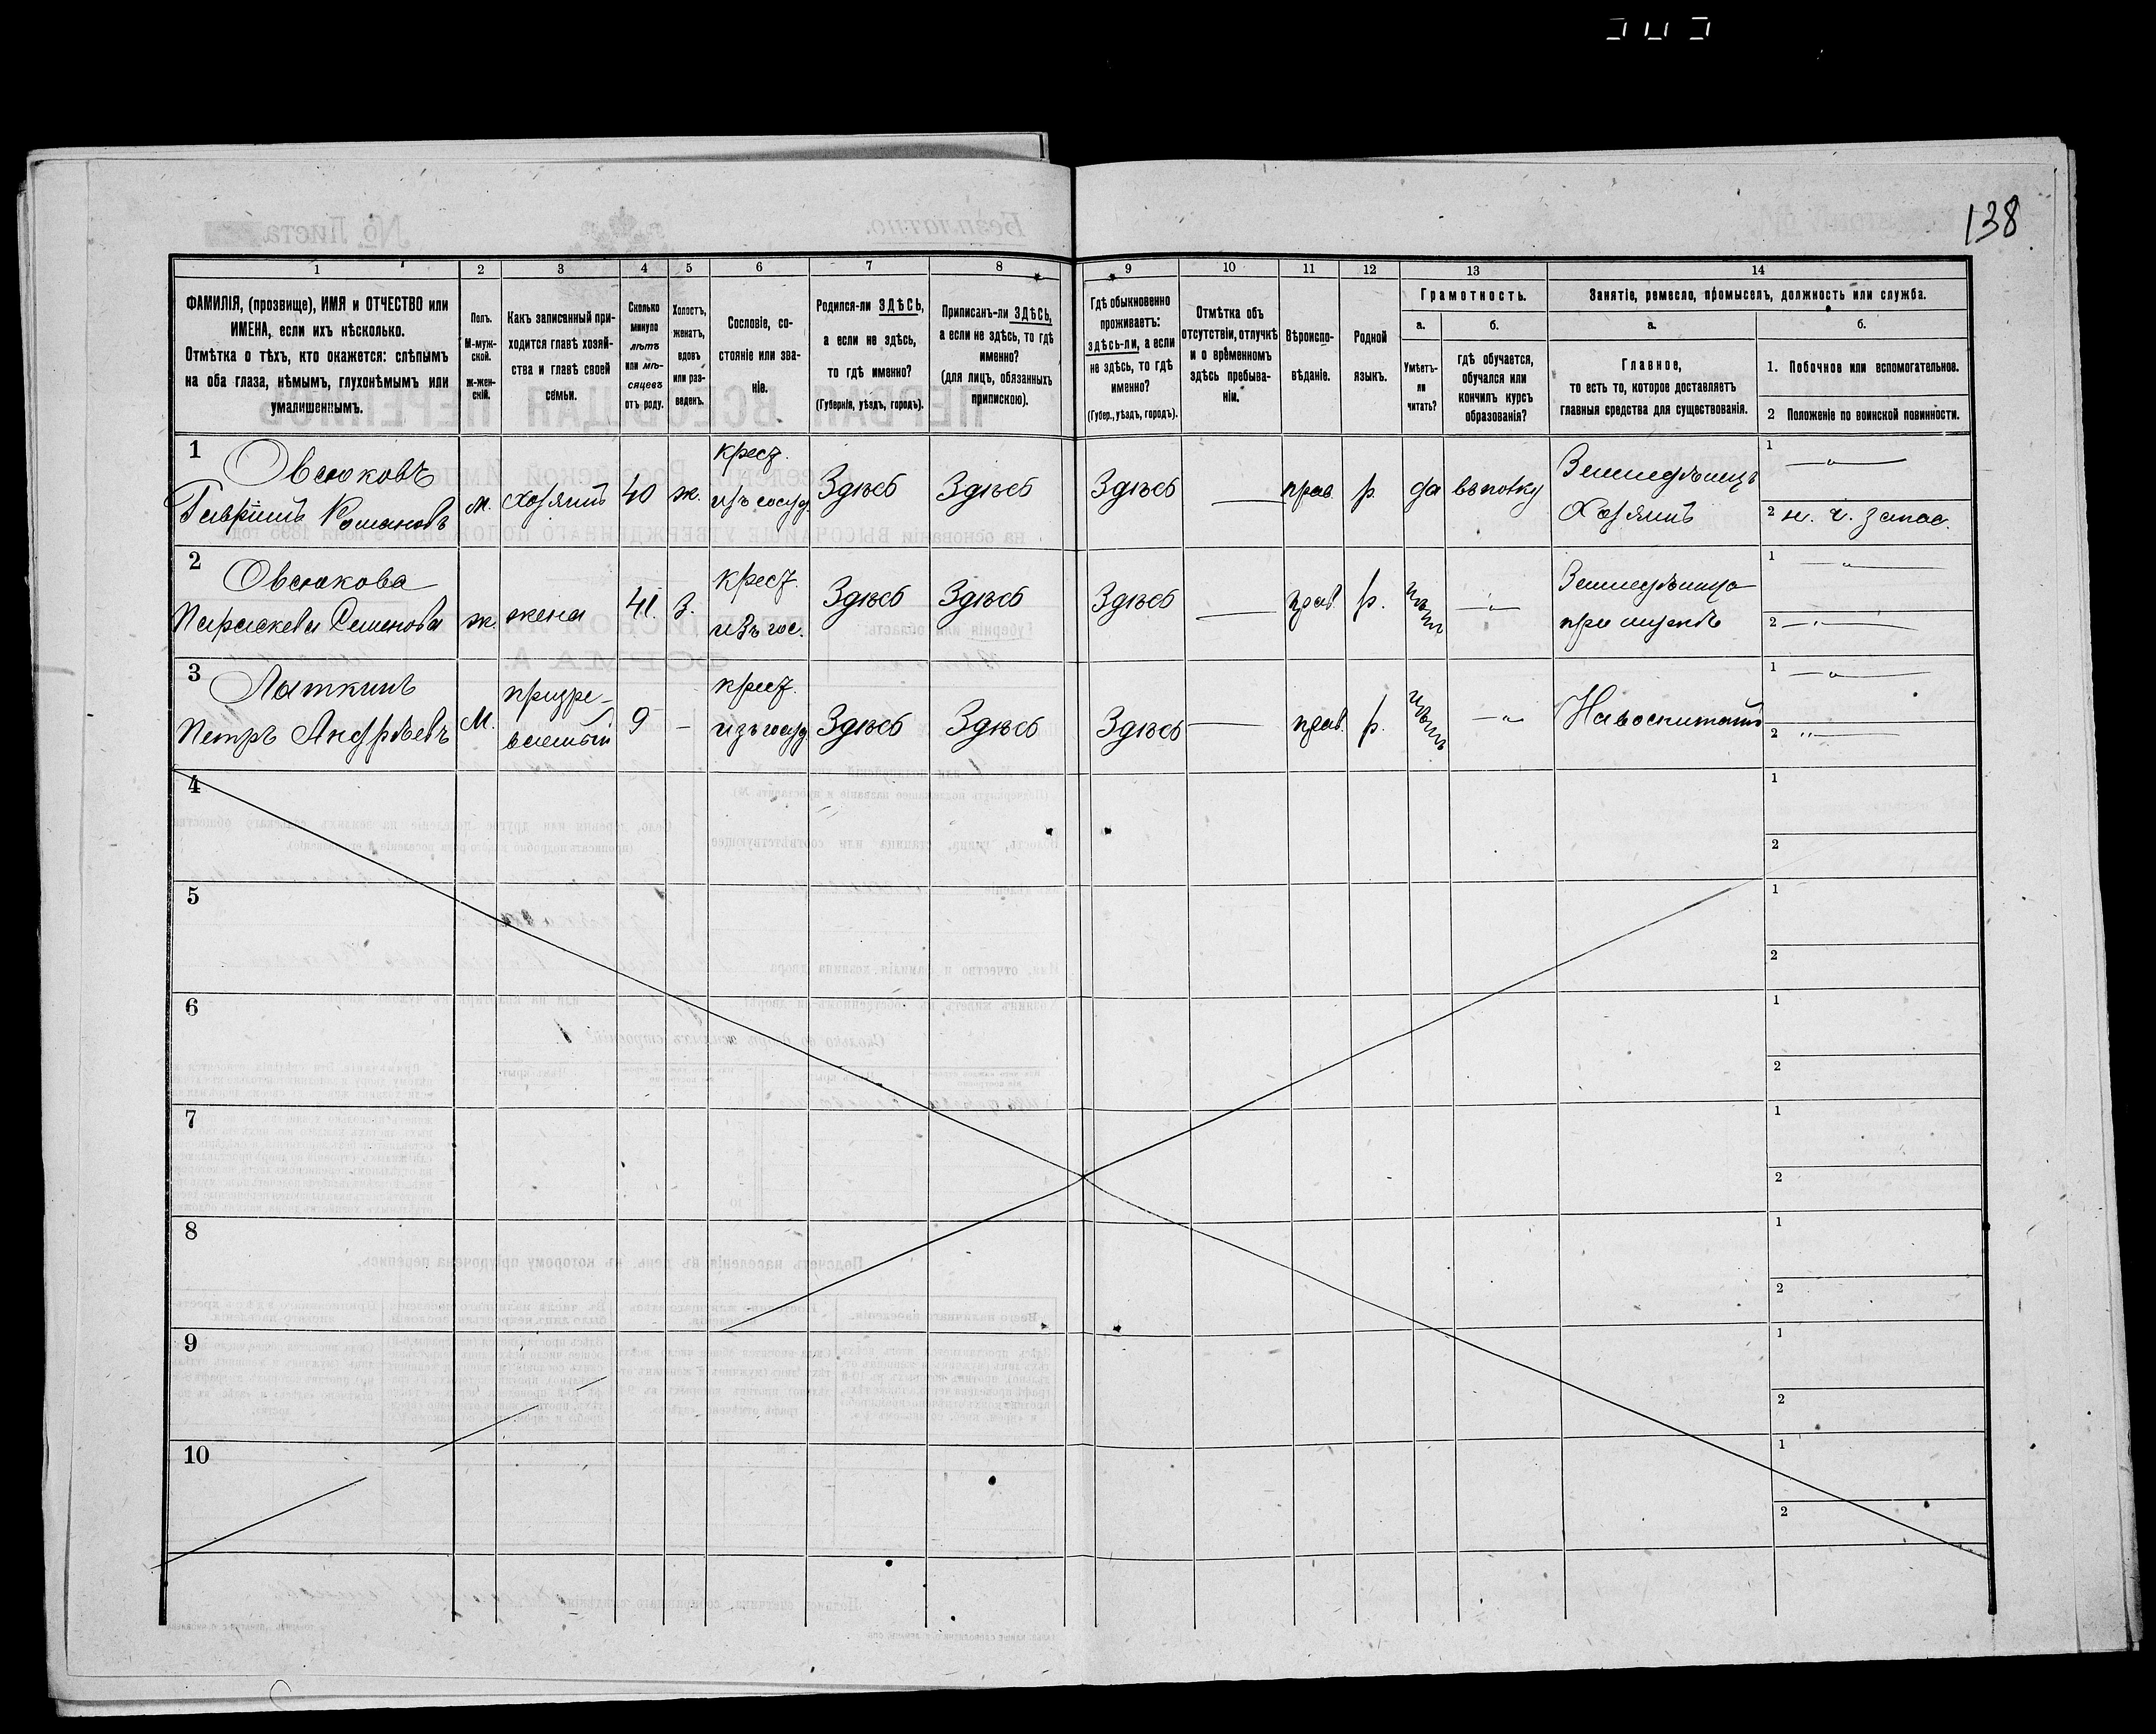 138
1 2 3 4 5 6 7 8 9 10 11 12 13 14
ФАМИЛІЯ, (прозвище), ИМЯ и ОТЧЕСТВО или
ИМЕНА, если ихъ нѣсколько.
Отмѣтка о тѣхъ, кто окажется: слѣпымъ
на оба глаза, нѣмымъ, глухонѣмымъ или
умалишеннымъ.
Полъ.
М-муж-
ской.
ж-жен-
скій.
Какъ записанный при-
ходится главѣ хозяй-
ства и главѣ своей
семьи.
Сколько
минуло
лѣтъ
или мѣ-
сяцевъ
отъ роду.
Холостъ,
женатъ,
вдовъ
или раз-
веденъ.
Сословіе, со-
стояніе или зва-
ніе.
Родился-ли ЗДѢСЬ,
а если не здѣсь,
то гдѣ именно?
(Губернія, уѣздъ, городъ).
Приписанъ-ли ЗДѢСЬ,
а если не здѣсь, то гдѣ
именно?
(для лицъ, обязанныхъ
припискою).
Гдѣ обыкновенно
проживаетъ:
здѣсь-ли, а если
не здѣсь, то гдѣ
именно?
(Губер., уѣздъ, городъ).
Отмѣтка объ
отсутствіи, отлучкѣ
и о временномъ
здѣсь пребыва-
ніи.
Вѣроиспо-
вѣданіе.
Родной
языкъ.
Грамотность.
а.
Умѣетъ-
ли
читать?
б.
гдѣ обучается,
обучался или
кончилъ курсъ
образованія?
Занятіе, ремесло, промыселъ, должность или служба.
а.
Главное,
то есть то, которое доставляетъ
главныя средства для существованія.
б.
1. Побочное или вспомогательное.
2 Положеніе по воинской повинности.
1
Овсюковъ
Гавріилъ Романовъ
м.
хозяинъ
40
ж.
крест.
изъ госуд.
Здѣсь
Здѣсь
Здѣсь
—
прав.
р.
да
Земледѣлецъ
Хозяинъ
1 — " —
2 н. ч. запас.
2
Овсюкова
Параскева Семенова
ж.
жена
41.
З.
крест.
изъ гос.
Здѣсь
Здѣсь
Здѣсь
—
прав.
р.
нѣтъ
— " —
Земледѣлица
при мужѣ
1 — " —
2 — " —
3
Латкинъ
Петръ Андрѣевъ
М.
призре-
ваемый
9
—
крест.
изъ госуд
Здѣсь
Здѣсь
Здѣсь
—
прав.
р.
нѣтъ
— "
На воспитаніи
1 — " —
2 " —
4
1
2
5
1
2
6
1
2
7
1
2
8
1
2
9
1
2
10
1
2